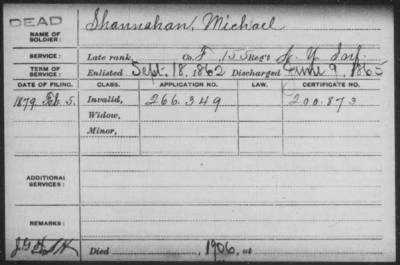 DEAD
NAME OF SOLDIER: Shannahan, Michael
SERVICE: Late rank, Co. F, 155 Reg't N. Y. Inf.
TERM OF SERVICE: Enlisted Sept. 18, 1862 Discharged June 9, 1865
DATE OF FILING. CLASS. APPLICATION NO. LAW. CERTIFICATE NO.
1879 Feb. 5. Invalid, 266.349 200.873
Widow,
Minor,
ADDITIONAL SERVICES:
REMARKS:
Died 1906, at